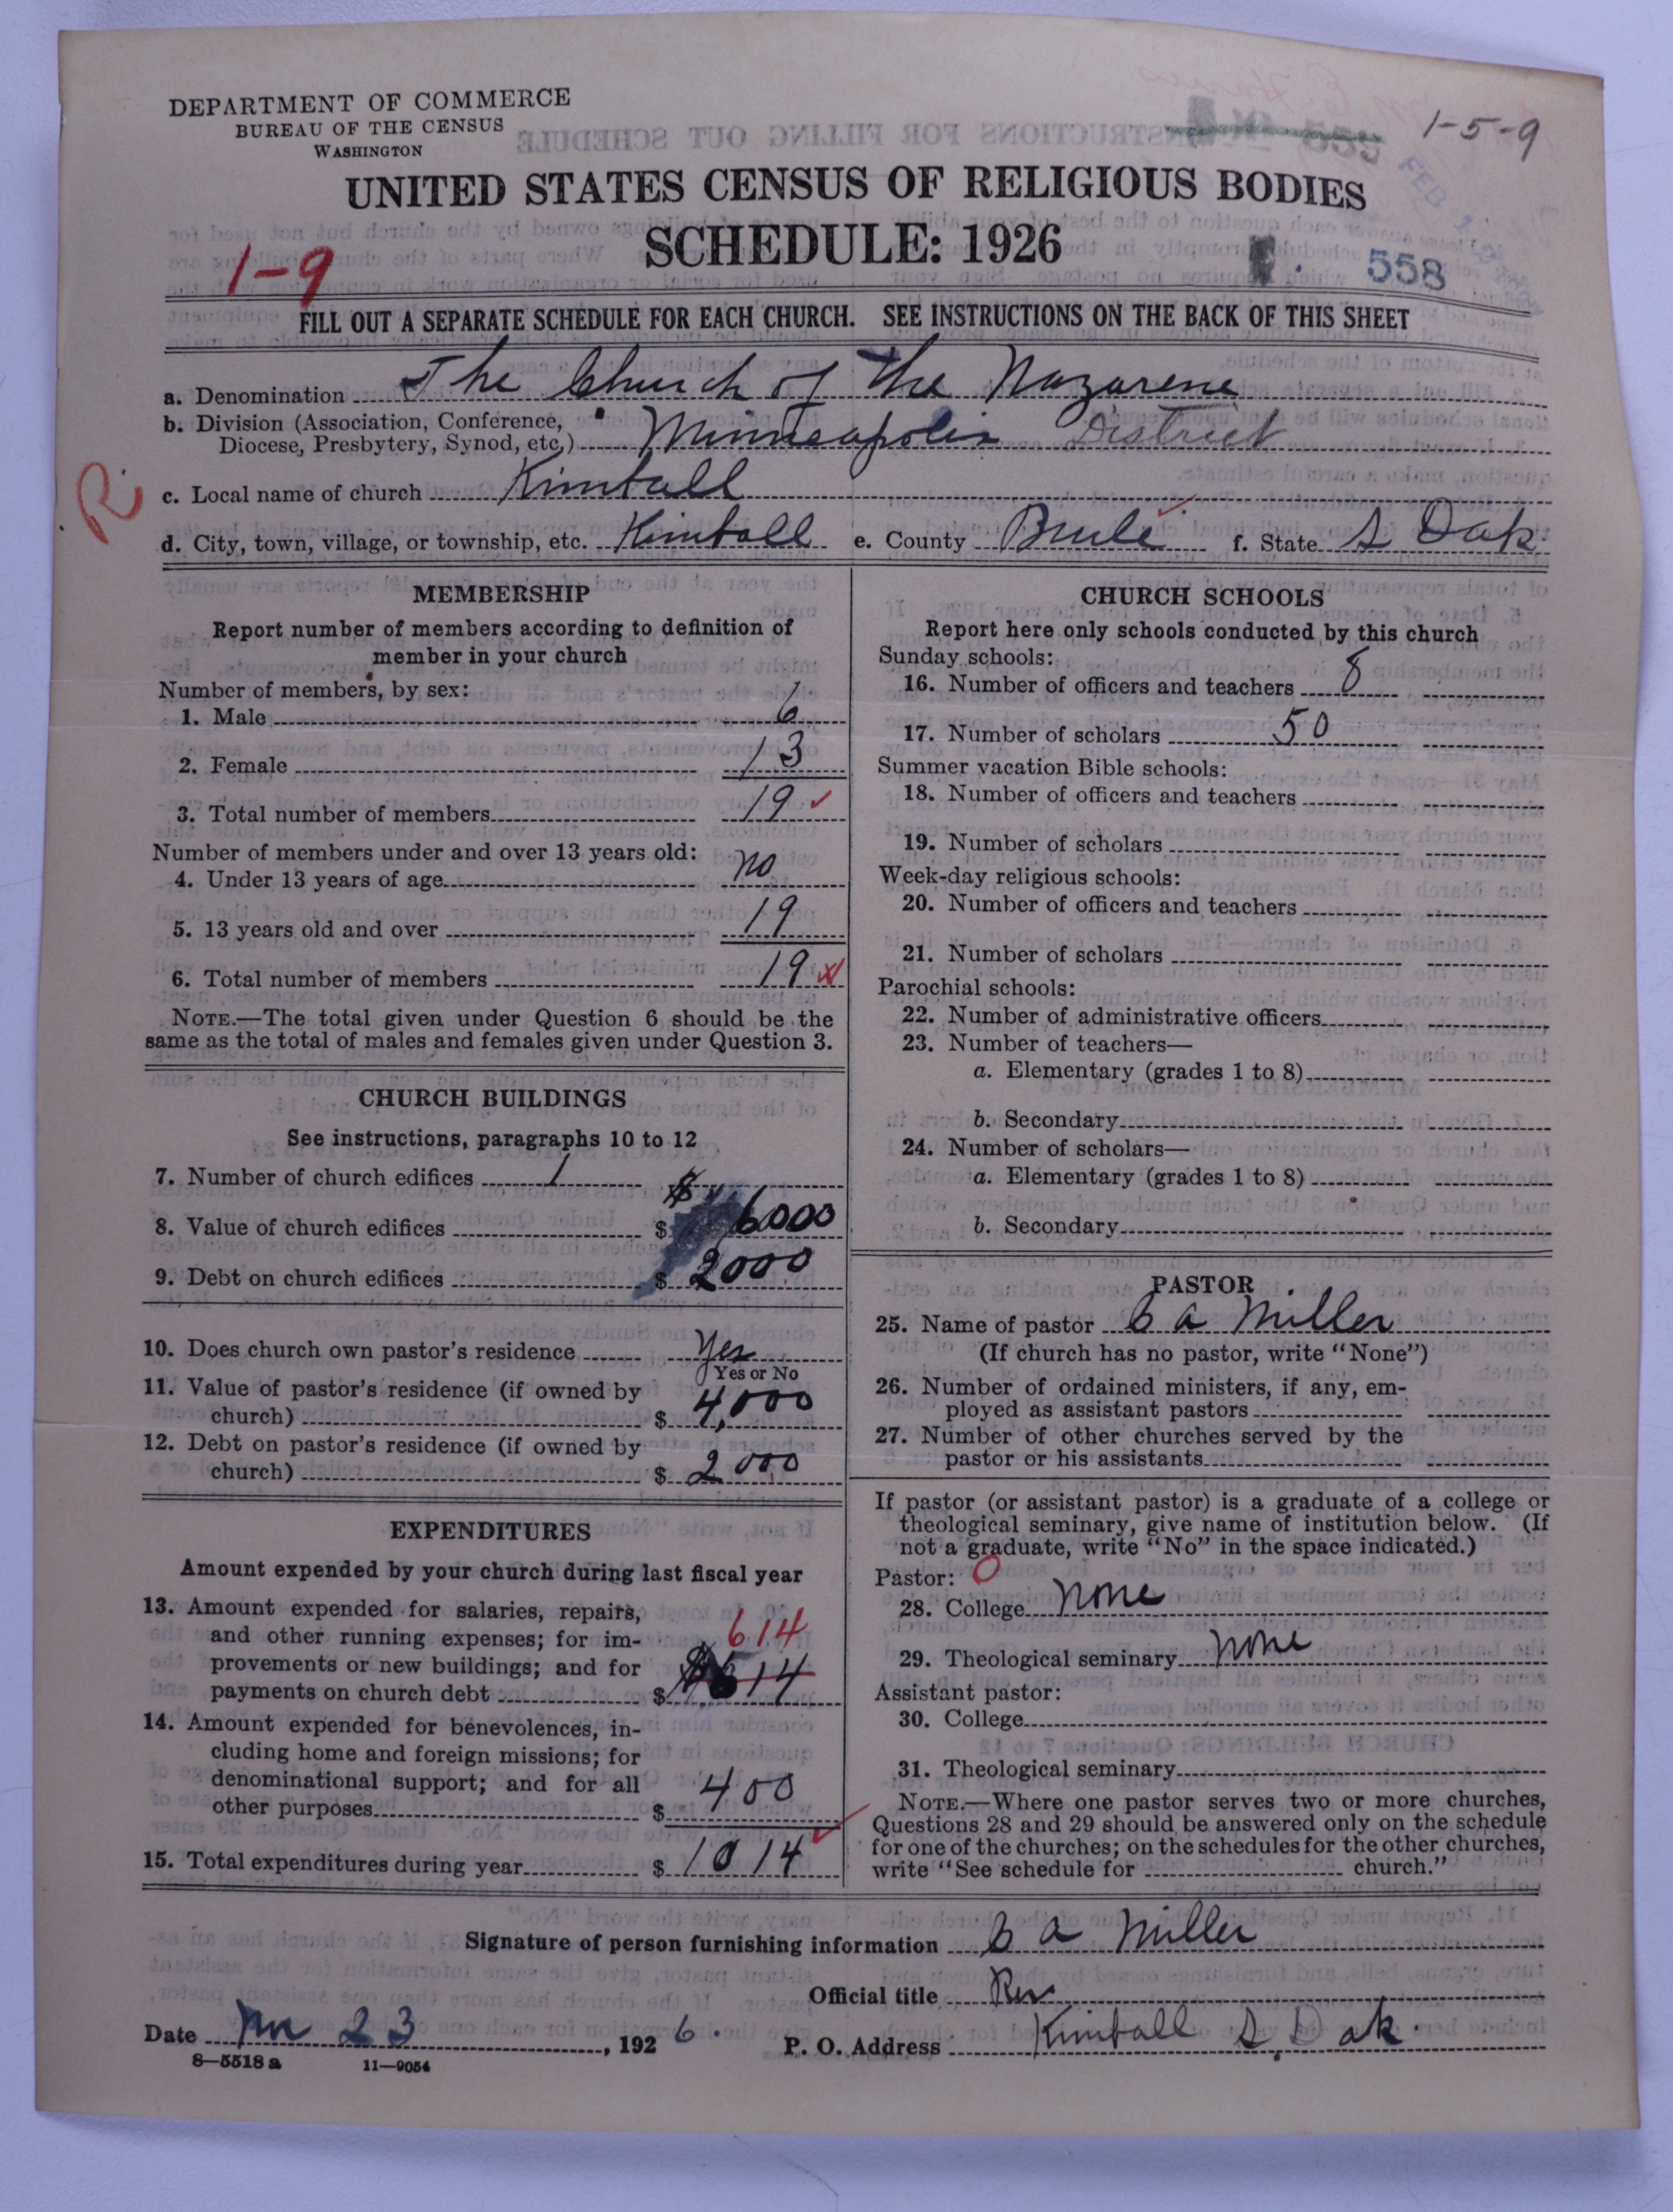 DEPARTMENT OF COMMERCE
BUREAU OF THE CENSUS
WASHINGTON
1-5-9
UNITED STATES CENSUS OF RELIGIOUS BODIES
SCHEDULE: 1926
1-9
558
FILL OUT A SEPARATE SCHEDULE FOR EACH CHURCH. SEE INSTRUCTIONS ON THE BACK OF THIS SHEET
a. Denomination The Church of the Nazarene
b. Division (Association, Conference,
Diocese, Presbytery, Synod, etc.) Minneapolis District
R.
c. Local name of church Kimball
d. City, town, village, or township, etc. Kimball e. County Brule f. State S Dak.
MEMBERSHIP
Report number of members according to definition of
member in your church
Number of members, by sex:
1. Male 6
2. Female 13
3. Total number of members 19
Number of members under and over 13 years old:
4. Under 13 years of age no
5. 13 years old and over 19
6. Total number of members 19
NOTE.—The total given under Question 6 should be the
same as the total of males and females given under Question 3.
CHURCH BUILDINGS
See instructions, paragraphs 10 to 12
7. Number of church edifices 1
8. Value of church edifices $ 6000
9. Debt on church edifices $ 2000
10. Does church own pastor's residence Yes
Yes or No
11. Value of pastor's residence (if owned by
church) $ 4,000
12. Debt on pastor's residence (if owned by
church) $ 2000
EXPENDITURES
Amount expended by your church during last fiscal year
13. Amount expended for salaries, repairs,
and other running expenses; for im-
provements or new buildings; and for
payments on church debt $ 614
14. Amount expended for benevolences, in-
cluding home and foreign missions; for
denominational support; and for all
other purposes $ 400
15. Total expenditures during year $ 1014
CHURCH SCHOOLS
Report here only schools conducted by this church
Sunday schools:
16. Number of officers and teachers 8
17. Number of scholars 50
Summer vacation Bible schools:
18. Number of officers and teachers
19. Number of scholars
Week-day religious schools:
20. Number of officers and teachers
21. Number of scholars
Parochial schools:
22. Number of administrative officers
23. Number of teachers—
a. Elementary (grades 1 to 8)
b. Secondary
24. Number of scholars—
a. Elementary (grades 1 to 8)
b. Secondary
PASTOR
25. Name of pastor C A Miller
(If church has no pastor, write "None")
26. Number of ordained ministers, if any, em-
ployed as assistant pastors
27. Number of other churches served by the
pastor or his assistants
If pastor (or assistant pastor) is a graduate of a college or
theological seminary, give name of institution below. (If
not a graduate, write "No" in the space indicated.)
Pastor: O
28. College none
29. Theological seminary none
Assistant pastor:
30. College
31. Theological seminary
NOTE.—Where one pastor serves two or more churches,
Questions 28 and 29 should be answered only on the schedule
for one of the churches; on the schedules for the other churches,
write "See schedule for church."
Signature of person furnishing information C A Miller
Official title Rev
Date 23, 1926.
P. O. Address Kimball S. Dak.
8-5518a 11-9054